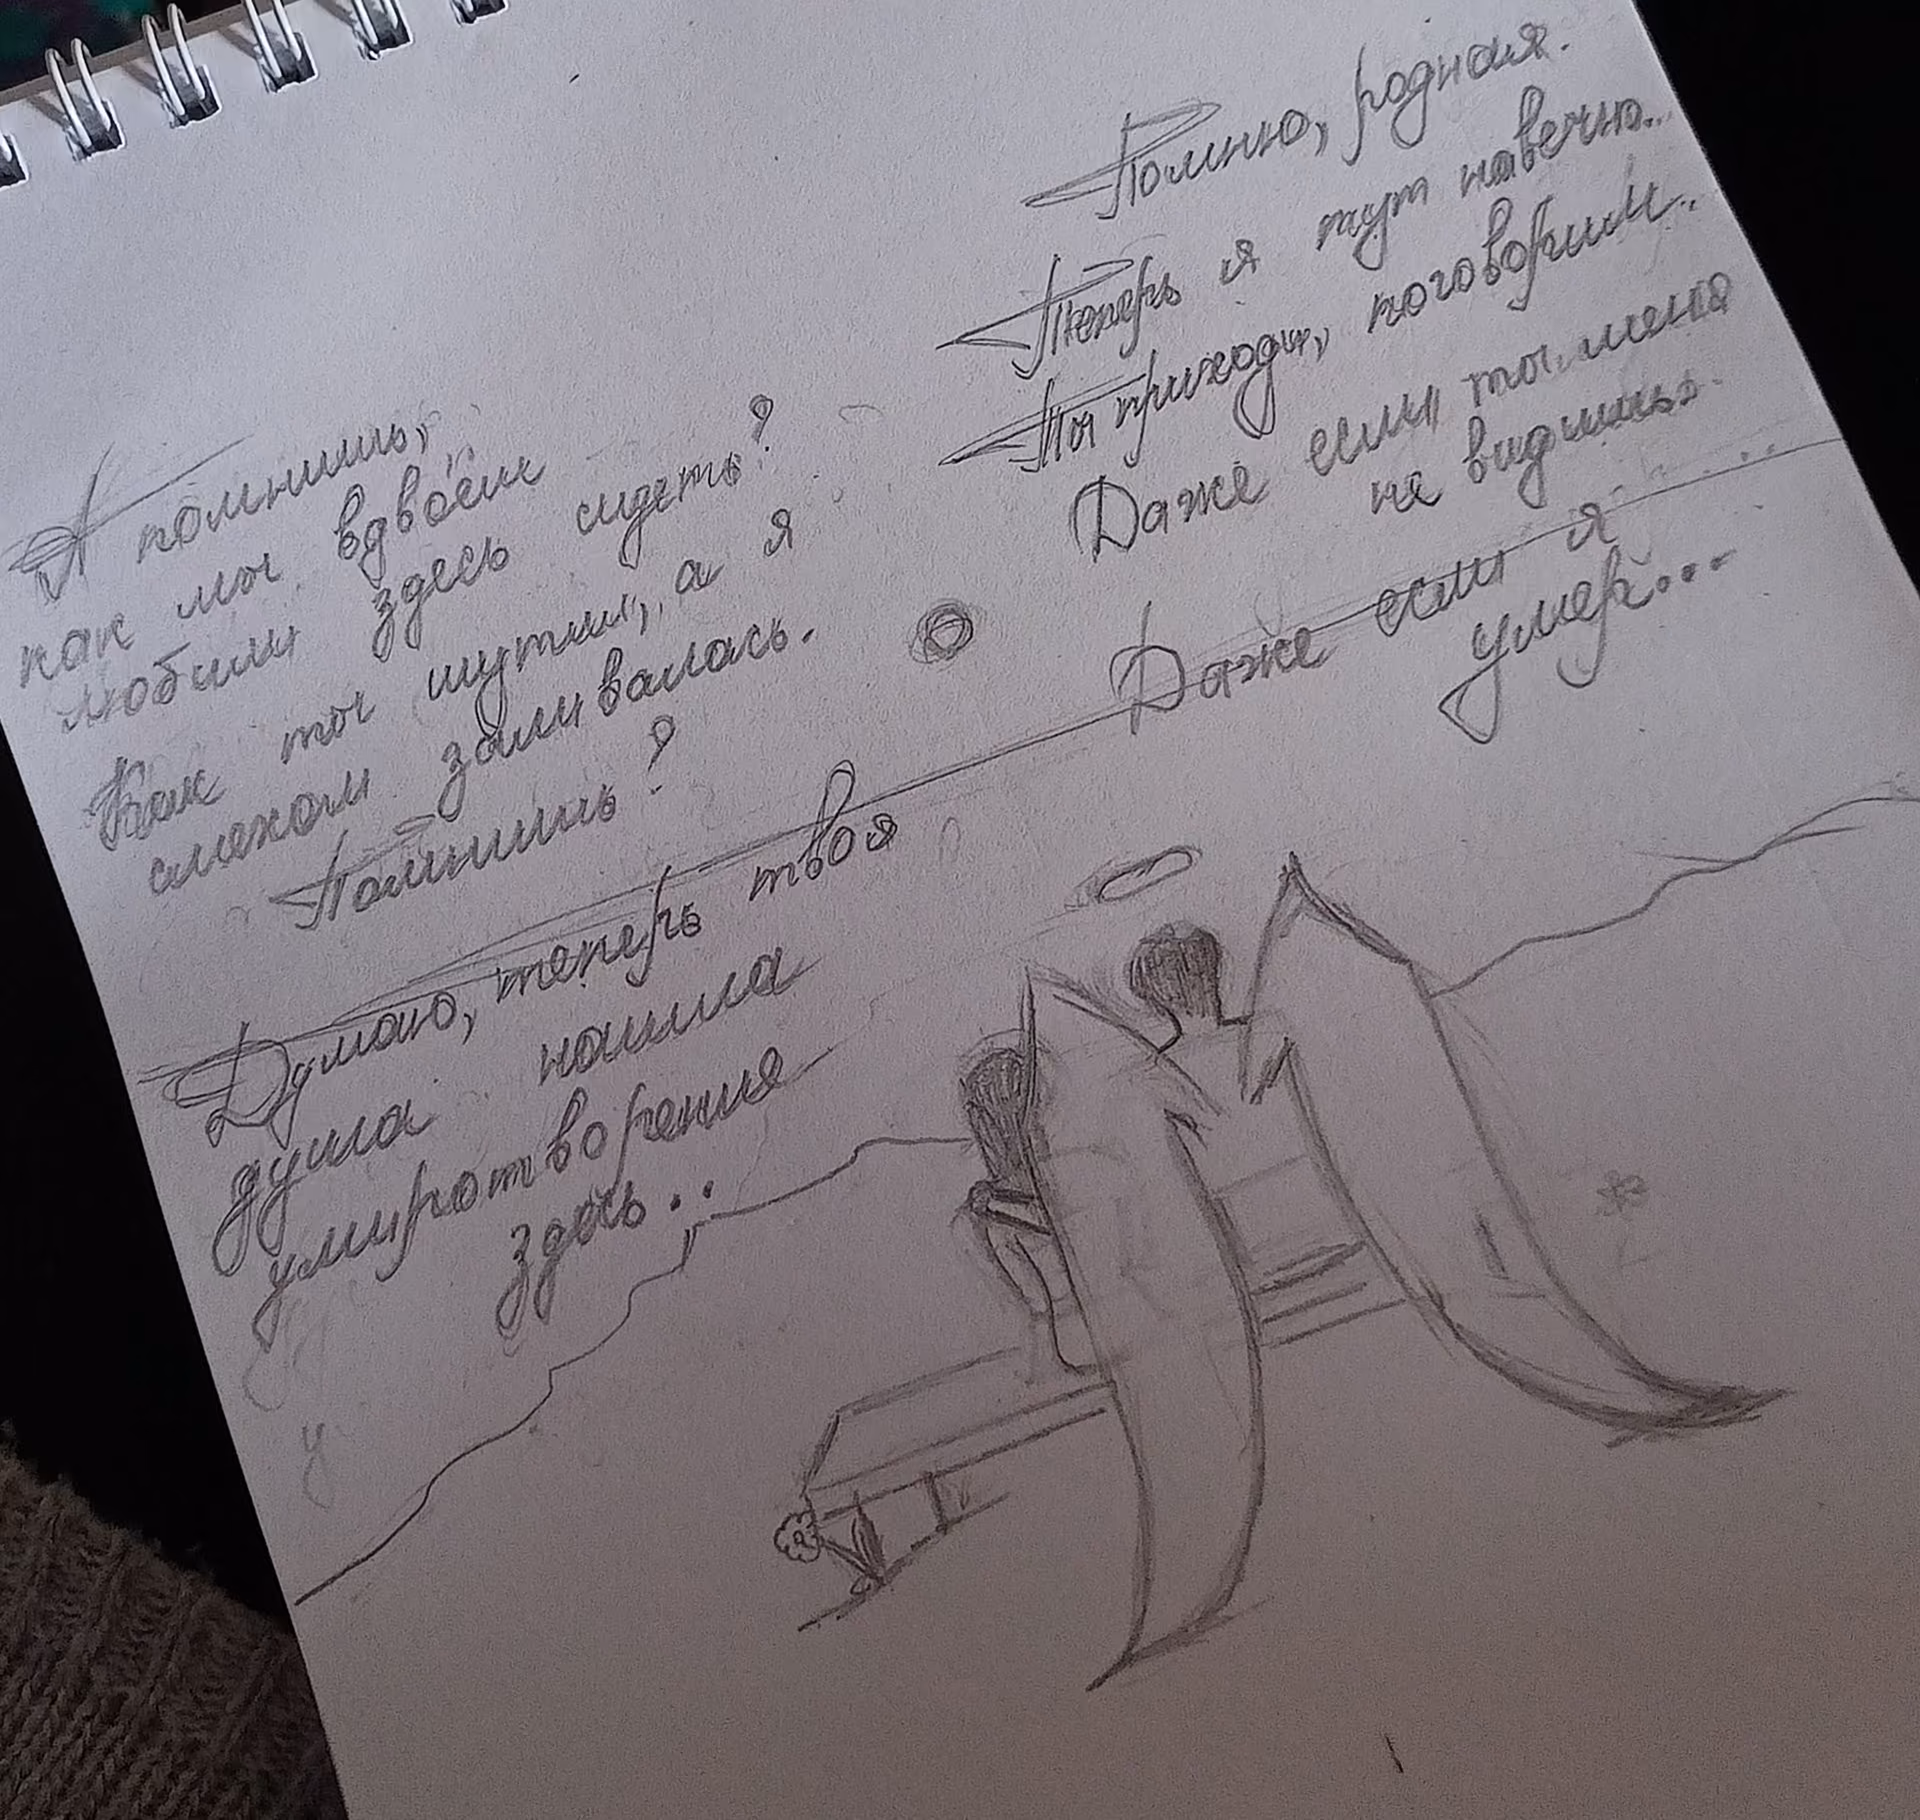 А помнишь,
как мы вдвоём
любили здесь сидеть?
Как ты шутил, а я
смехом заливалась.
Помнишь?
Думаю, теперь твоя
душа нашла
умиротворения
здесь..
Помню, родная.
Теперь я тут навечно..
Ты приходи, поговорим..
Даже если ты меня
не видишь.
Даже если я
умер...